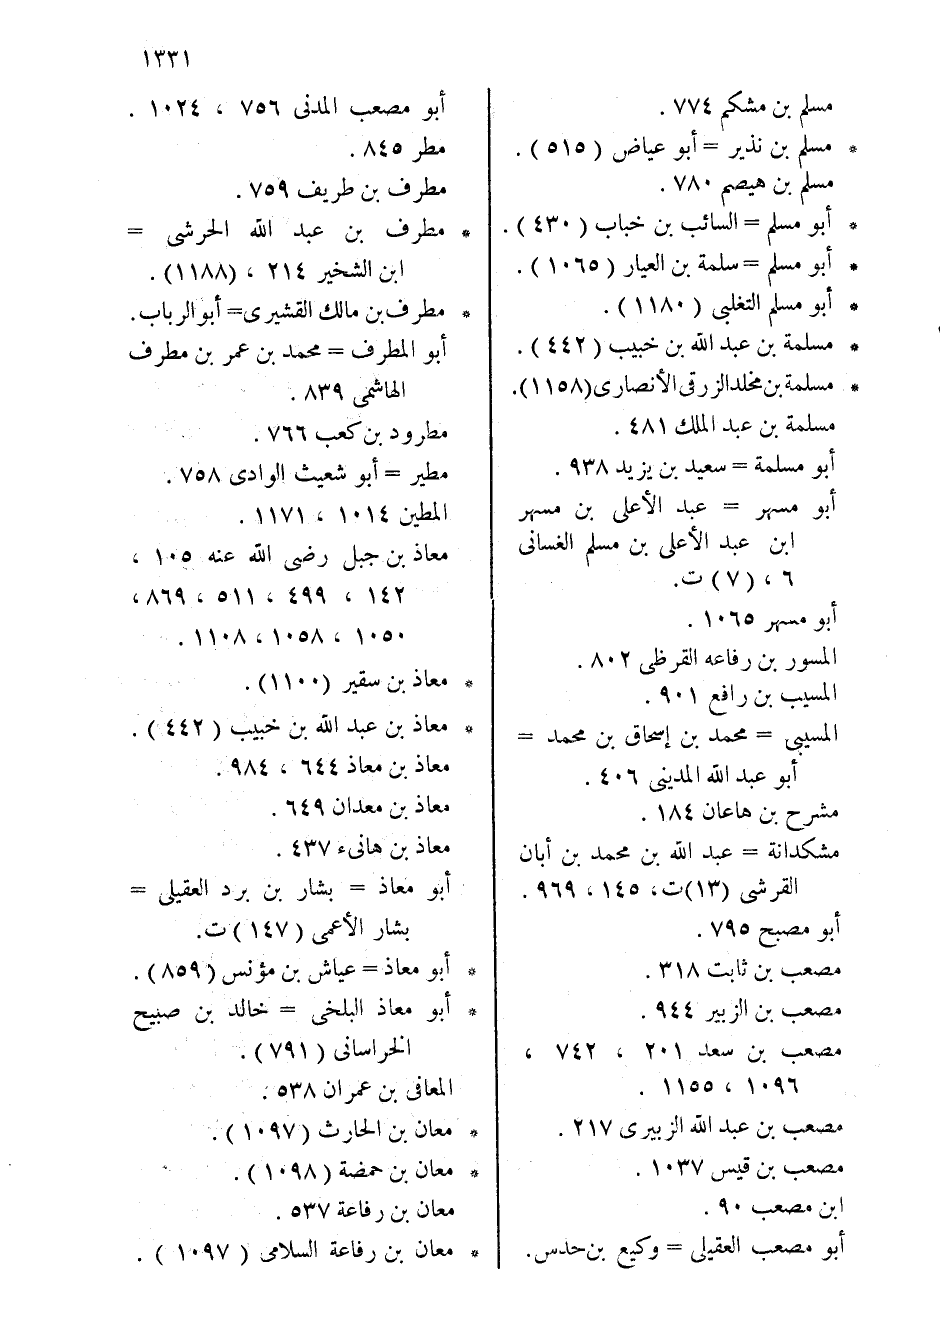 ١٣٣١
مسلم بن مشكم ٧٧٤ .
* مسلم بن نذير = أبو عياض ( ٥١٥ ) .
مسلم بن هيصم ٧٨٠ .
* أبو مسلم = السائب بن خباب ( ٤٣٠ ) .
* أبو مسلم = سلمة بن العيار ( ١٠٦٥ ) .
* أبو مسلم التغلبي ( ١١٨٠ ) .
* مسلمة بن عبد الله بن خبيب ( ٤٤٢ ) .
* مسلمة بن مخلد الزرقى الأنصارى (١١٥٨).
مسلمة بن عبد الملك ٤٨١ .
أبو مسلمة = سعيد بن يزيد ٩٣٨ .
أبو مسهر = عبد الأعلى بن مسهر
ابن عبد الأعلى بن مسلم الغسانى
٦ ، ( ٧ ) ت.
أبو مسهر ١٠٦٥ .
المسور بن رفاعه القرظى ٨٠٢ .
المسيب بن رافع ٩٠١ .
المسيبى = محمد بن إسحاق بن محمد =
أبو عبد الله المدينى ٤٠٦ .
مشرح بن هاعان ١٨٤ .
مشكدانة = عبد الله بن محمد بن أبان
القرشى (١٣)ت ، ١٤٥ ، ٩٦٩ .
أبو مصبح ٧٩٥ .
مصعب بن ثابت ٣١٨ .
مصعب بن الزبير ٩٤٤ .
مصعب بن سعد ٢٠١ ، ٧٤٢ ،
١٠٩٦ ، ١١٥٥ .
مصعب بن عبد الله الزبيرى ٢١٧ .
مصعب بن قيس ١٠٣٧ .
ابن مصعب ٩٠ .
أبو مصعب العقيلى = وكيع بن حدس.
أبو مصعب المدنى ٧٥٦ ، ١٠٢٤ .
مطر ٨٤٥ .
مطرف بن طريف ٧٥٩ .
* مطرف بن عبد الله الحرشى =
ابن الشخير ٢١٤ ، (١١٨٨) .
* مطرف بن مالك القشيرى= أبو الرباب.
أبو المطرف = محمد بن عمر بن مطرف
الهاشمى ٨٣٩ .
مطرود بن كعب ٧٦٦ .
مطير = أبو شعيث الوادى ٧٥٨ .
المطين ١٠١٤ ، ١١٧١ .
معاذ بن جبل رضى الله عنه ١٠٥ ،
١٤٢ ، ٤٩٩ ، ٥١١ ، ٨٦٩ ،
١٠٥٠ ، ١٠٥٨ ، ١١٠٨ .
* معاذ بن سقير (١١٠٠) .
* معاذ بن عبد الله بن خبيب ( ٤٤٢ ) .
معاذ بن معاذ ٦٤٤ ، ٩٨٤ .
معاذ بن معدان ٦٤٩ .
معاذ بن هانىء ٤٣٧ .
أبو معاذ = بشار بن برد العقيلى =
بشار الأعمى ( ١٤٧ ) ت.
* أبو معاذ = عياش بن مؤنس ( ٨٥٩ ) .
* أبو معاذ البلخى = خالد بن صبيح
الخراسانى ( ٧٩١ ) .
المعافى بن عمران ٥٣٨ .
* معان بن الحارث ( ١٠٩٧ ) .
* معان بن حمضة ( ١٠٩٨ ) .
معان بن رفاعة ٥٣٧ .
* معان بن رفاعة السلامى ( ١٠٩٧ ) .